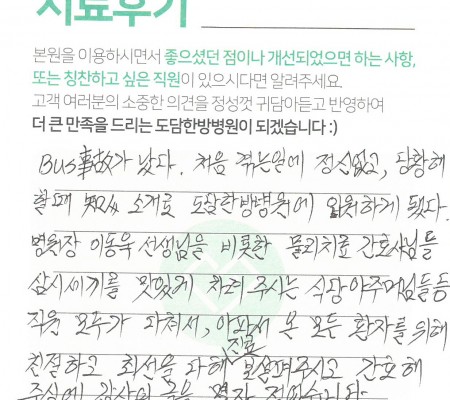 치료후기
본원을 이용하시면서 좋으셨던 점이나 개선되었으면 하는 사항,
또는 칭찬하고 싶은 직원이 있으시다면 알려주세요.
고객 여러분의 소중한 의견을 정성껏 귀담아듣고 반영하여
더 큰 만족을 드리는 도담한방병원이 되겠습니다 :)
Bus事故가 났다. 처음 겪는일에 정신없고, 당황해
할때 知人 소개로 도담한방병원에 입원하게 됐다.
병원장 이동욱 선생님을 비롯한 물리치료 간호사님들
삼시세끼를 맛있게 차려 주시는 식당아주머님들등
직원 모두가 다쳐서, 아파서 온 모든 환자를 위해
진료
친절하고 최선을 다해 보살펴주시고 간호해
주심에 감사의 글을 몇자 적었습니다.